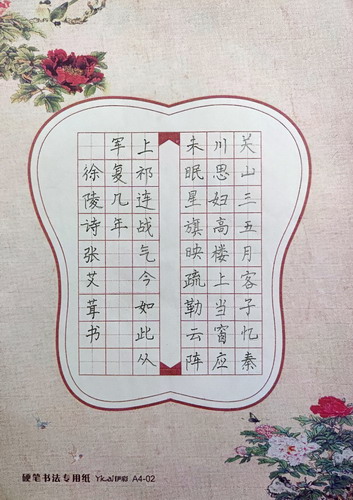 关山三五月客子忆秦
川思妇高楼上当窗应
未眠星旗映疏勒云阵
上祁连战气今如此从
军复几年
徐陵诗张艾茸书
硬笔书法专用纸 A4-02